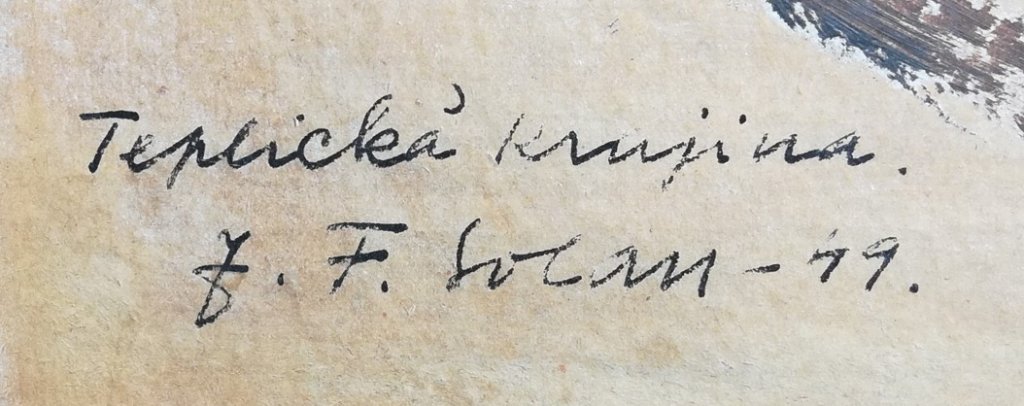 Teplická krajina.
J. F. Solan - 49.